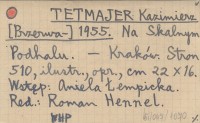 TETMAJER Kazimierz
[Brzerwa-] 1955. Na Skalnym
Podhalu. — Kraków. Stron
510, ilustr., opr., cm 22 × 16.
Wstęp: Aniela Łempicka.
Red.: Roman Hennel.
WHP